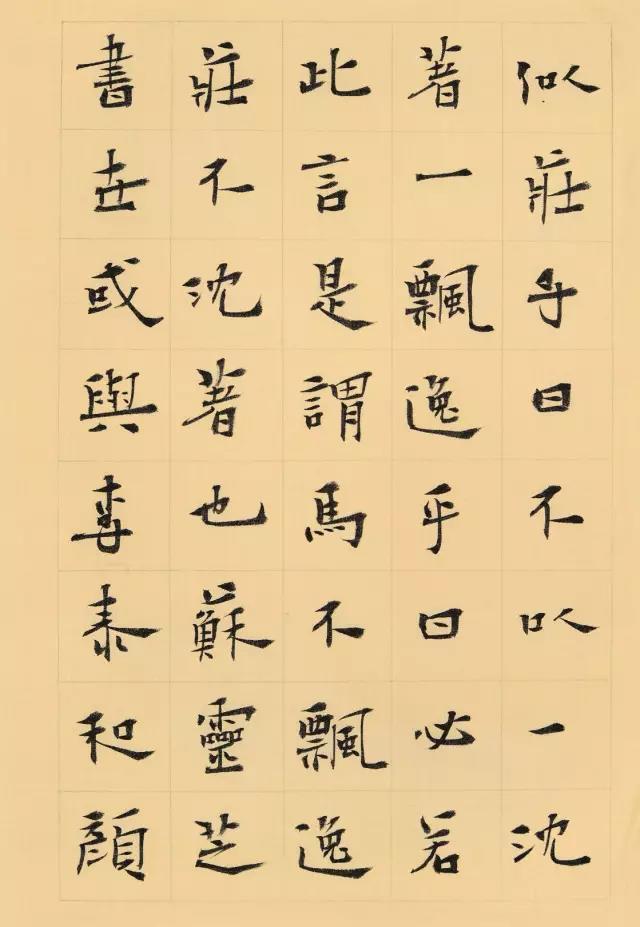 似莊乎曰不以一沈
著一飄逸乎曰必若
此言是謂馬不飄逸
莊不沈著也蘇靈芝
書在或與李泰和顔